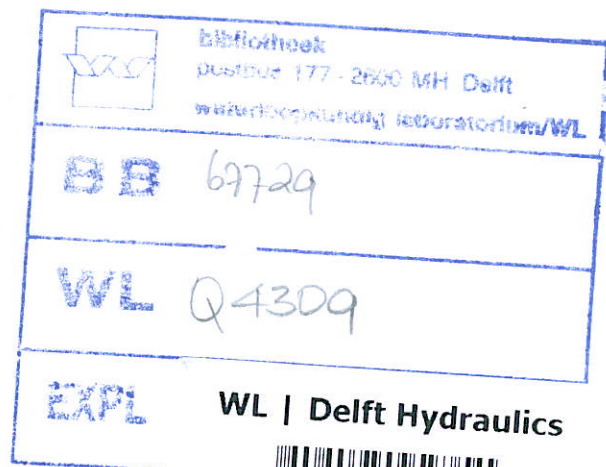 bibliotheek
postbus 177 - 2600 MH Delft
waterloopkundig laboratorium/WL
BB 67729
WL Q4309
EXPL
WL | Delft Hydraulics